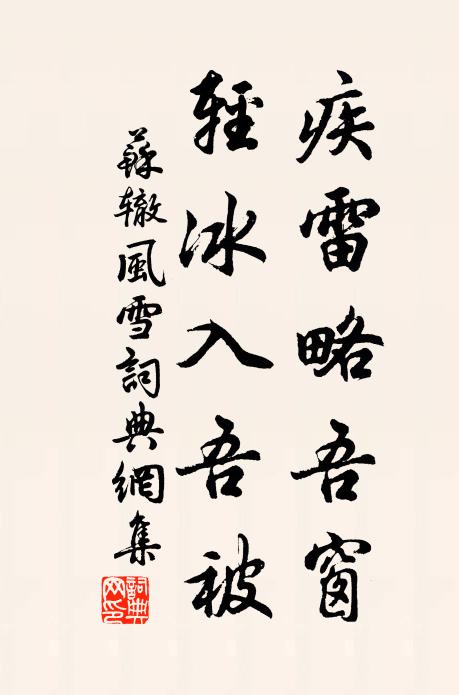 疾雷略吾窗
輕冰入吾被
蘇辙風雪詞典網集
詞典网印